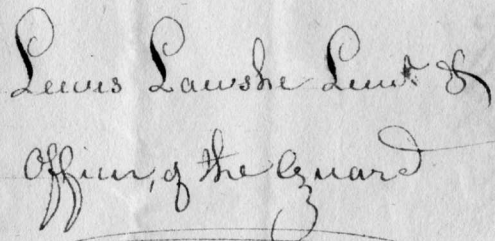 Lewis Lawshe Lieut. &
Officer, of the Guard